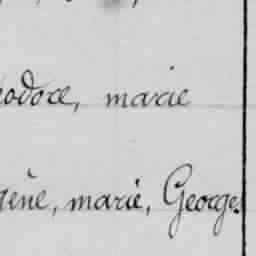 eodore, marie
gène, marié, Georges